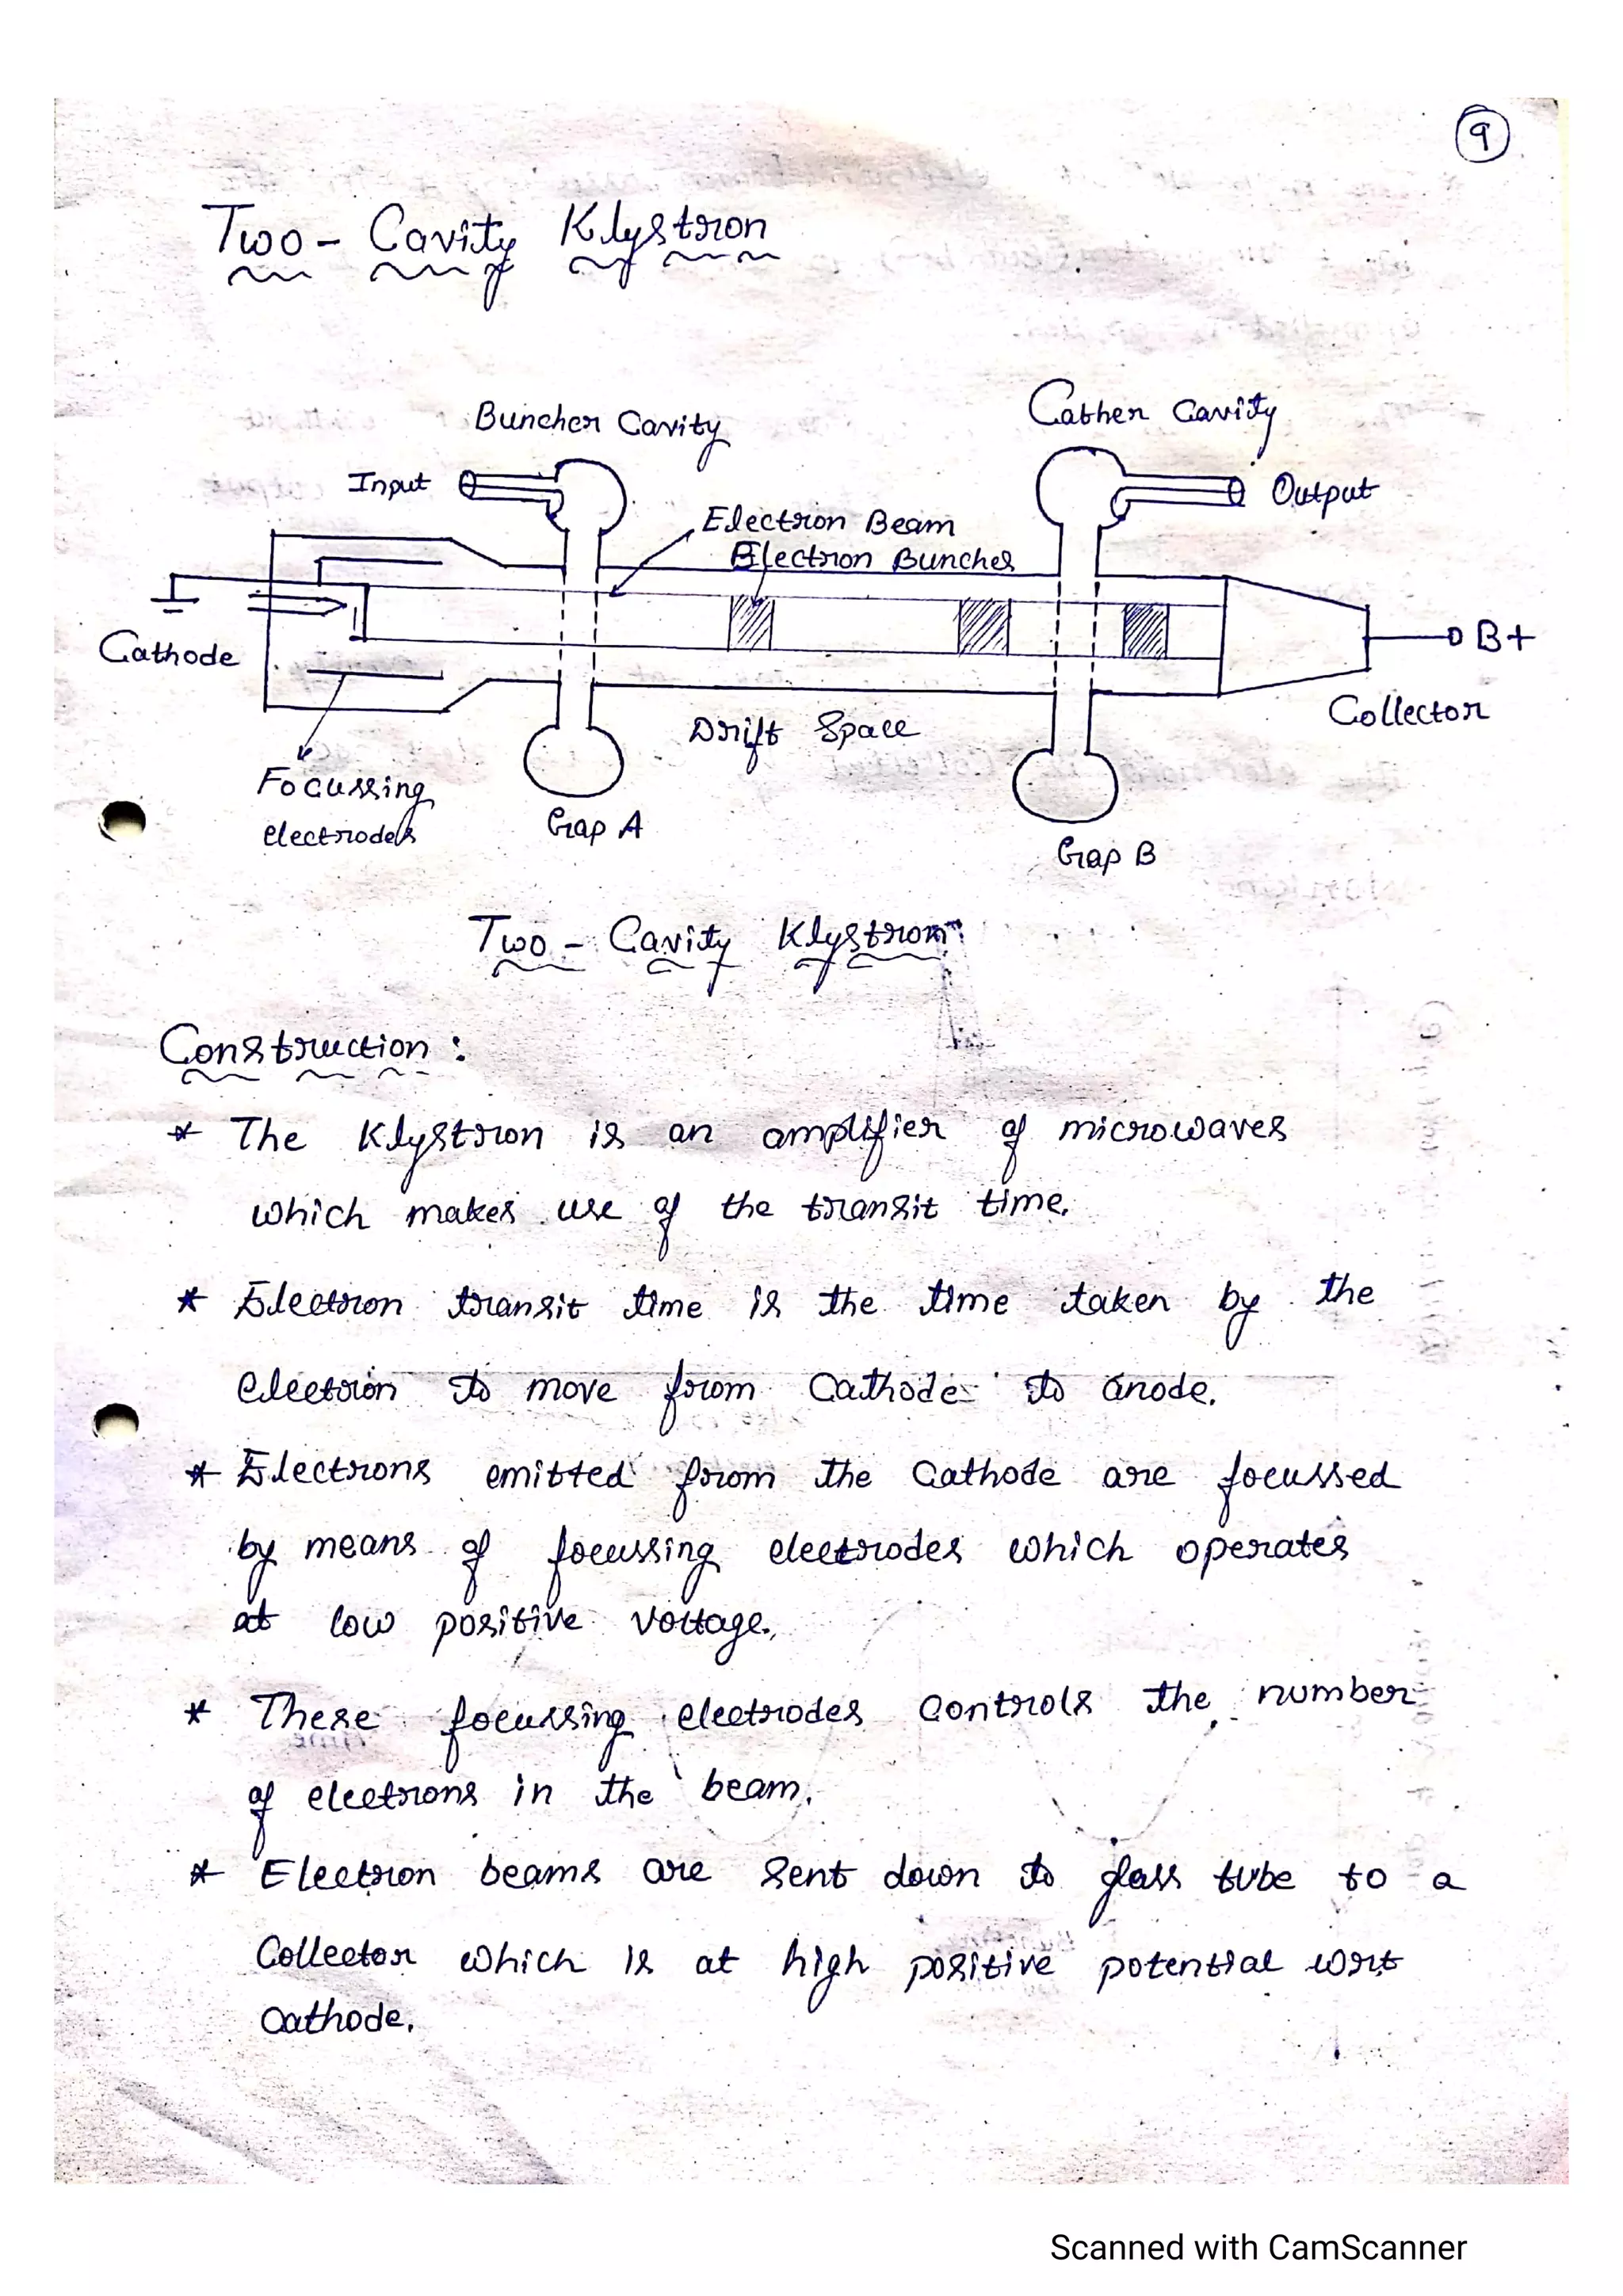 9
Two - Cavity Klystron
Buncher Cavity
Cather Cavity
Input
Output
Electron Beam
Electron Bunches
Cathode
B+
Collector
Drift Space
Focussing
electrodes
Gap A
Gap B
Two - Cavity Klystron
Construction :
* The Klystron is an amplifier of microwaves
which makes use of the transit time.
* Electron transit time is the time taken by the
electron to move from Cathode to anode.
* Electrons emitted from the Cathode are focussed
by means of focussing electrodes which operates
at low positive voltage.
* These focussing electrodes Controls the number
of electrons in the beam.
* Electron beams are sent down to glass tube to a
Collector which is at high positive potential wrt
Cathode.
Scanned with CamScanner